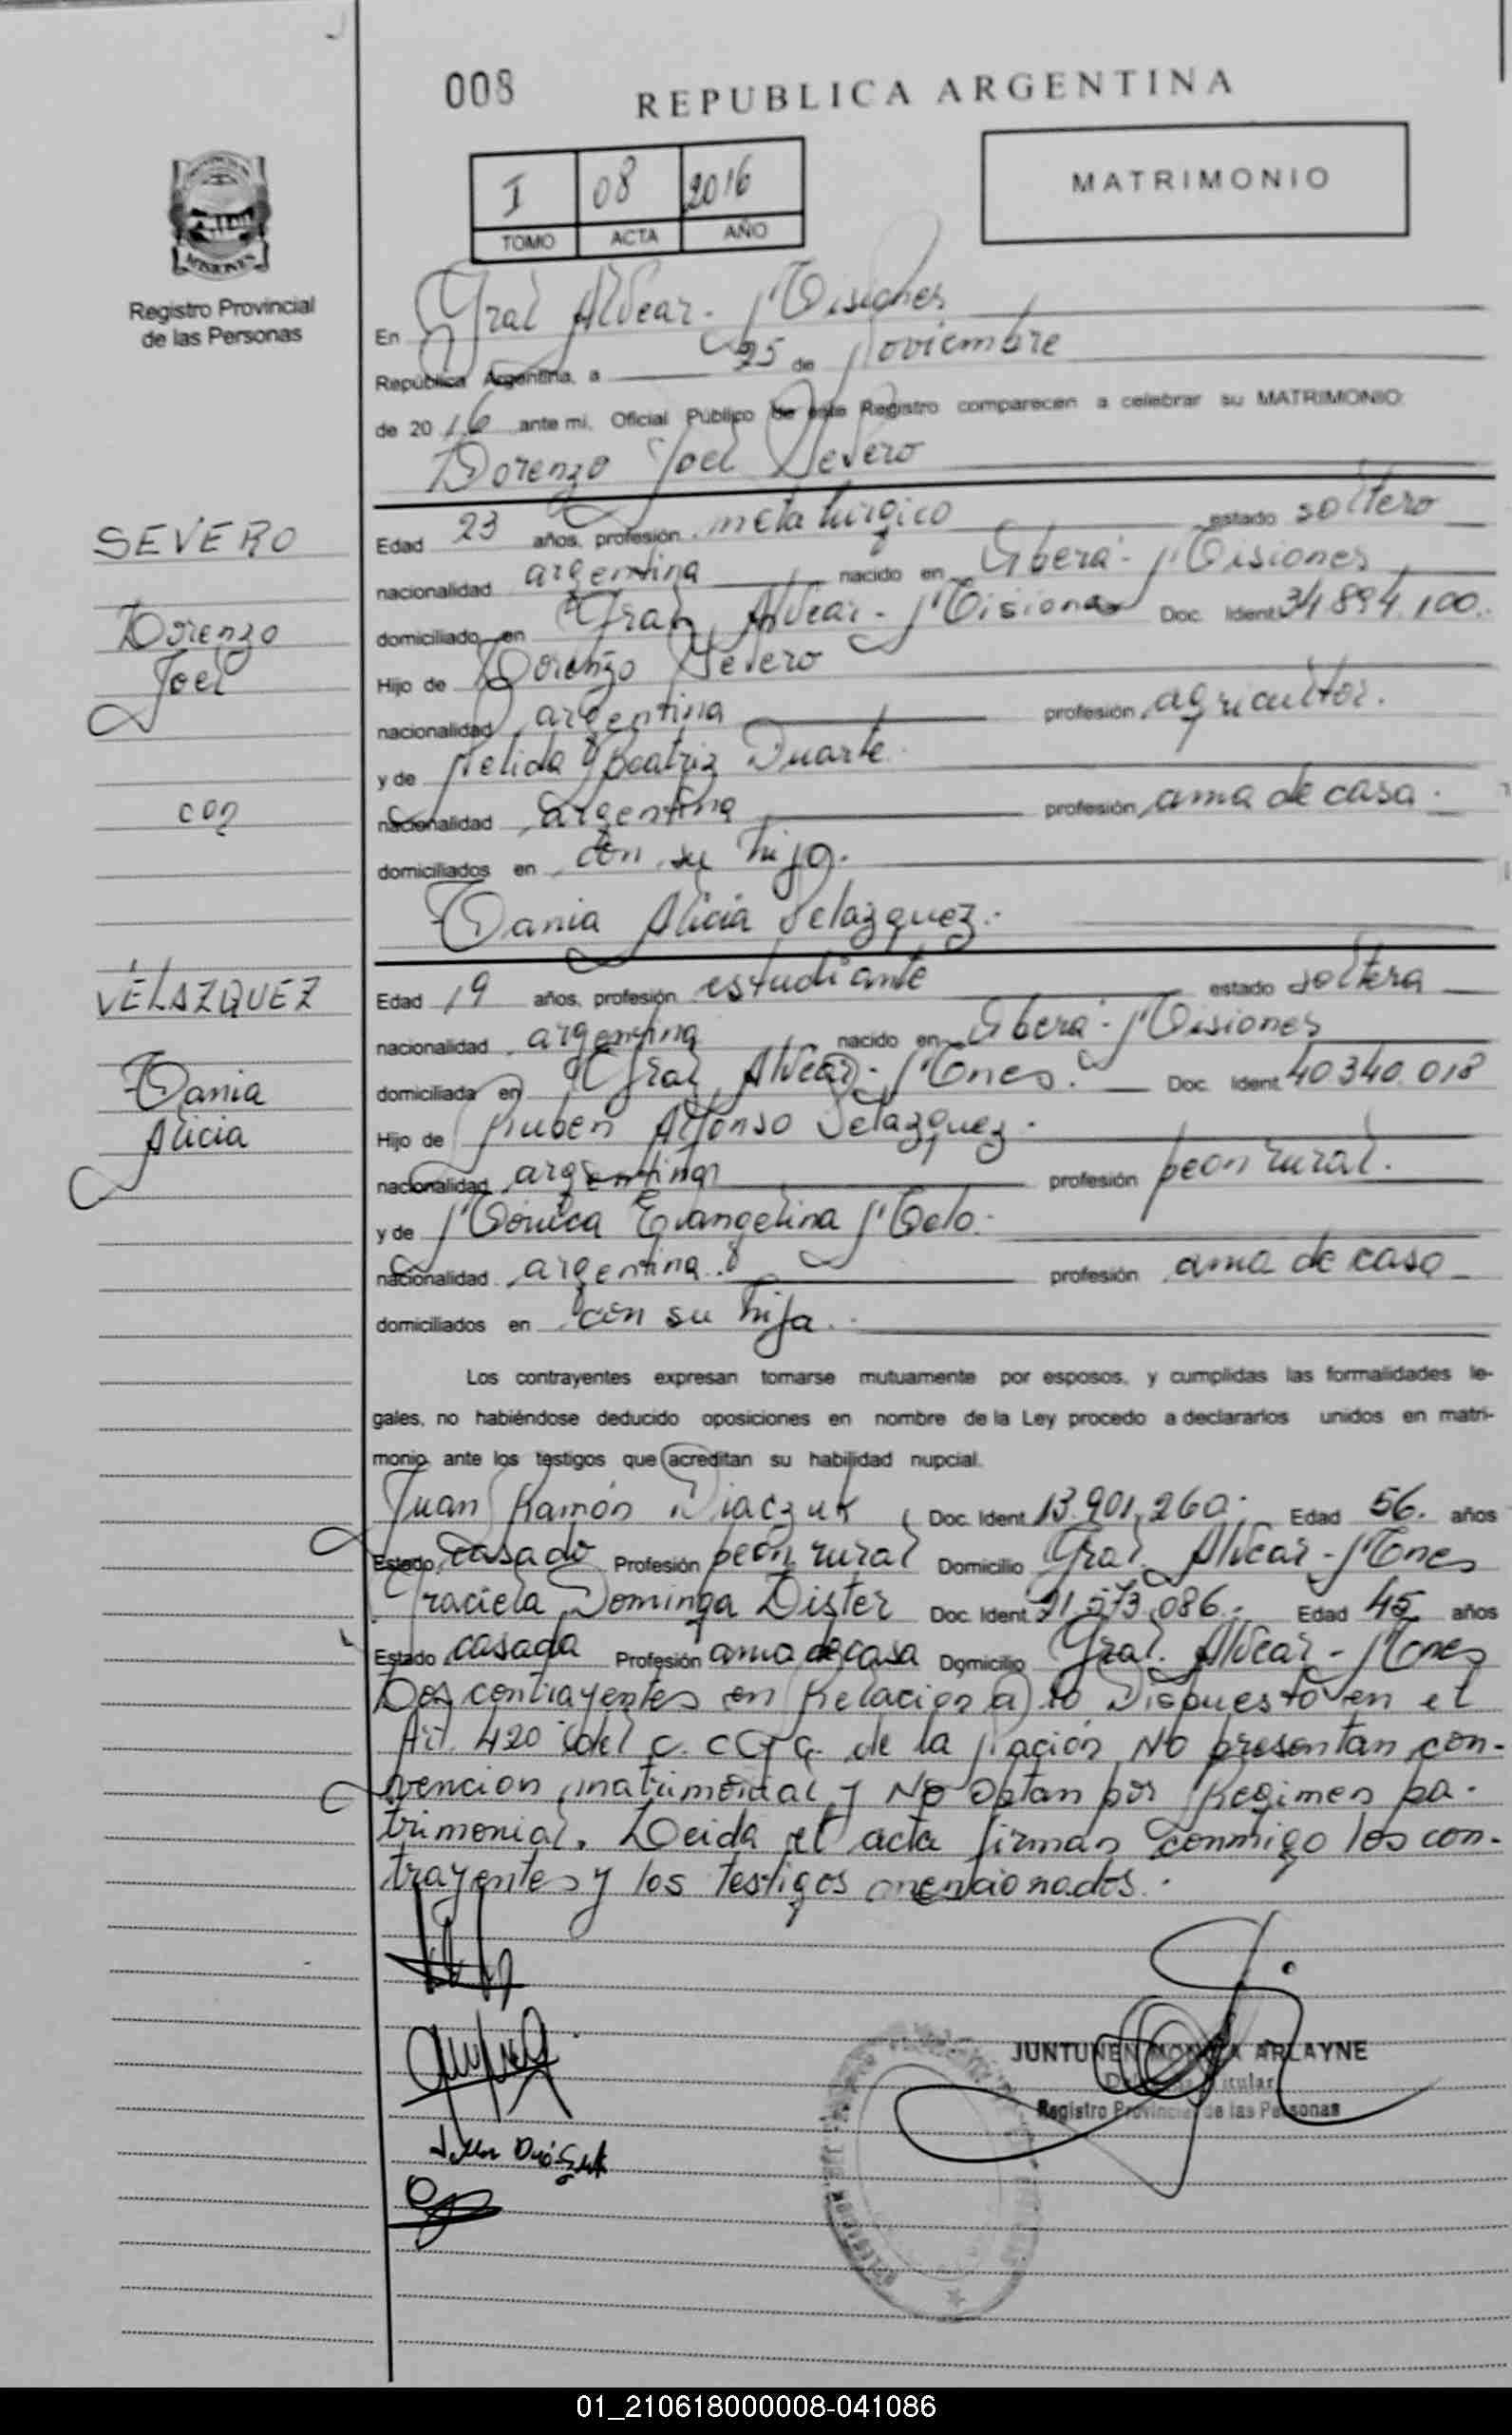 008
REPUBLICA ARGENTINA
I 08 2016
TOMO ACTA AÑO
MATRIMONIO
MISIONES
Registro Provincial
de las Personas
En Gral Alvear - Misiones
República Argentina, a 25 de Noviembre
de 2016 ante mi, Oficial Público de este Registro comparecen a celebrar su MATRIMONIO:
Lorenzo Joel Severo
SEVERO
Lorenzo
Joel
con
VELAZQUEZ
Tania
Alicia
Edad 23 años, profesión metalúrgico estado soltero
nacionalidad argentina nacido en Oberá - Misiones
domiciliado en Gral Alvear - Misiones Doc. Ident 34.894.100.-
Hijo de Lorenzo Severo
nacionalidad argentina profesión agricultor.
y de Nelida Beatriz Duarte.
nacionalidad argentina profesión ama de casa.
domiciliados en con su hijo.
Tania Alicia Velazquez.-
Edad 19 años, profesión estudiante estado soltera
nacionalidad argentina nacido en Oberá - Misiones
domiciliada en Gral Alvear - Mones. Doc. Ident. 40.340.018
Hijo de Ruben Alfonso Velazquez.
nacionalidad argentina profesión peon rural.
y de Mónica Evangelina Melo.
nacionalidad argentina. profesión ama de casa
domiciliados en con su hija.
Los contrayentes expresan tomarse mutuamente por esposos, y cumplidas las formalidades le-
gales, no habiéndose deducido oposiciones en nombre de la Ley procedo a declararlos unidos en matri-
monio ante los testigos que acreditan su habilidad nupcial.
Juan Ramón Diaczuk Doc. Ident. 13.901.260.- Edad 56. años
Estado casado Profesión peon rural Domicilio Gral. Alvear - Mones
Graciela Dominga Dister Doc. Ident. 21.573.086.- Edad 45 años
Estado casada Profesión ama de casa Domicilio Gral. Alvear - Mones
Los contrayentes en Relacion a lo Dispuesto en el
Art. 420 del C. C Y C. de la Nación No presentan con-
vencion matrimonial y No optan por Regimen pa-
trimonial. Leida el acta firman conmigo los con-
trayentes y los testigos mencionados.
JUNTUNEN MONICA ARLAYNE
Registro Provincial de las Personas
01_210618000008-041086